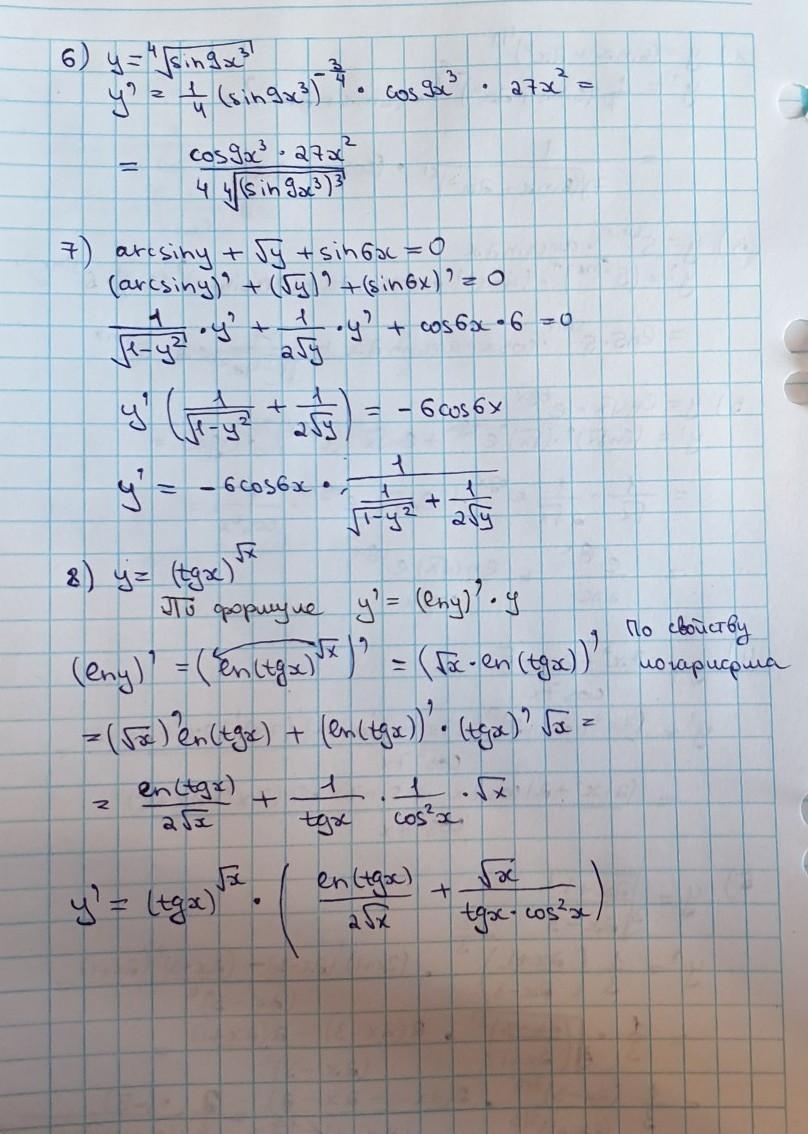 6) y = ⁴√(sin9x³)
y' = 1/4 (sin9x³)^(-3/4) · cos9x³ · 27x² =
= (cos9x³ · 27x²)/(4 ⁴√((sin9x³)³))
7) arcsiny + √y + sin6x = 0
(arcsiny)' + (√y)' + (sin6x)' = 0
1/√(1-y²) · y' + 1/(2√y) · y' + cos6x · 6 = 0
y' (1/√(1-y²) + 1/(2√y)) = - 6cos6x
y' = - 6cos6x · 1/(1/√(1-y²) + 1/(2√y))
8) y = (tgx)^√x
По формуле y' = (lny)' · y
(lny)' = (ln(tgx)^√x)' = (√x · ln(tgx))' По свойству логарифма
= (√x)' ln(tgx) + (ln(tgx))' · (tgx)' √x =
= ln(tgx)/(2√x) + 1/tgx · 1/cos²x · √x
y' = (tgx)^√x · (ln(tgx)/(2√x) + √x/(tgx · cos²x))